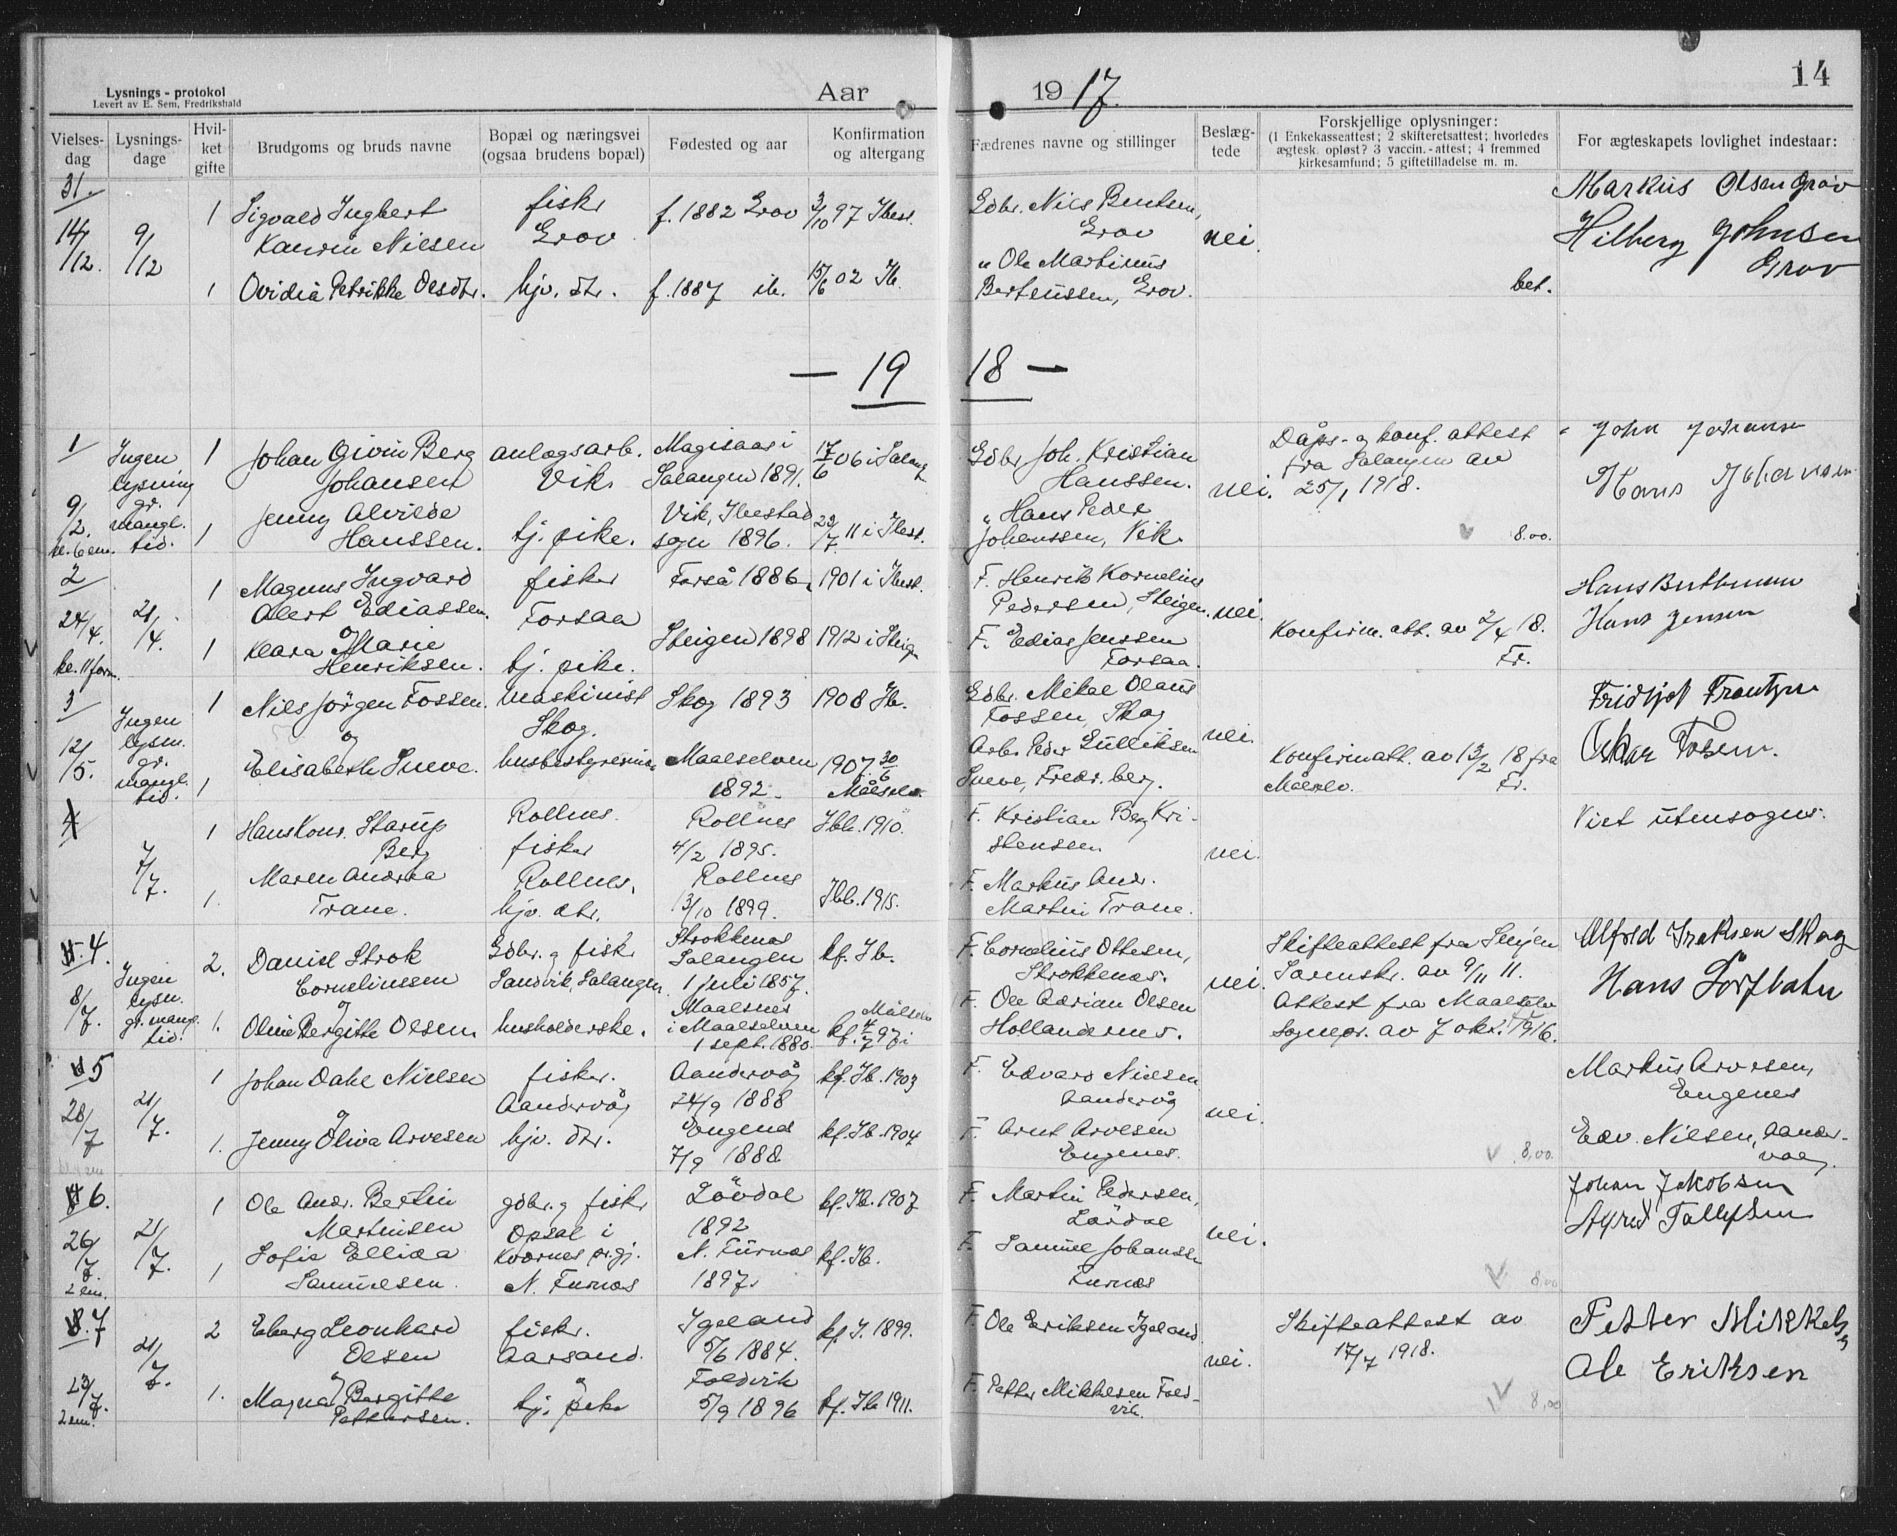 Lysnings - protokol
Levert av E. Sem, Fredrikshald
Aar 1917.
14
Vielses-dag
Lysnings-dage
Hvil-ket gifte
Brudgoms og bruds navne
Bopæl og næringsvei (ogsaa brudens bopæl)
Fødested og aar
Konfirmation og altergang
Fædrenes navne og stillinger
Beslæg-tede
Forskjellige oplysninger:
(1 Enkekasseattest; 2 skifteretsattest; hvorledes ægtesk. opløst? 3 vaccin.-attest; 4 fremmed kirkesamfund; 5 giftetilladelse m. m.
For ægteskapets lovlighet indestaar:
31.
14/12. 9/12
1 Sigvald Ingbert
Nilsen
fisker
Grov
f. 1882 Grov
3/10 97 Ibest.
Gdbr. Nils Bentsen,
Grov
nei.
Markus Olsen Grov
Hilberg Johnsen
Grov
1 Ovidia Petrikke Olsdtr.
hjv. dtr.
f. 1887 ib.
15/6 02 Ib.
" Ole Martinus
Berteussen, Grov.
bet.
— 19 18 —
1
9/2.
kl. 6 em.
Ingen
lysning
gr.
mangl.
tid.
1 Johan Berg
Johansen
anlægsarb.
Vik
i
Salangen 1891.
17/6 06 i Salang
Gdbr Joh. Kristian
Hanssen.
nei.
Dåps- og konf. attest
fra Salangen av
25/1 1918.
John Johansen
Hans Johansen
1 Jenny Alvilde
Hanssen.
tj. pike.
Vik, Ibestad
sogn 1896.
11 i Ibest.
" Hans Peder
Johanssen, Vik.
8.00.
2
24/4.
kl. 11 form.
21/4.
1 Magnus Ingvard
Albert Ediassen.
og
fisker
Forsaa
Forså 1886
1901 i Ibest.
F. Henrik Kornelius
Pedersen, Steigen.
nei.
Konfirm. att. av 2/4 18.
Fr.
Hans Jensen
1 Klara Marie
Henriksen.
tj. pike.
Steigen 1898
1912 i Steig
F. Edias Jenssen
Forsaa.
3
12/5.
Ingen
lysn.
gr.
mangl.
tid.
1 Nils Jörgen Fossen.
og
maskinist
Skog.
Skog 1893
1908 Ib.
Gdbr. Mikal Olaus
Fossen, Skog
nei.
Konfirmatt. av 13/2 18 fra
Målselv. Fr.
Oskar Fossen.
1 Elisabeth Sneve.
husbestyrerinne
Maalselven
1892.
1907 30/6
Målselv.
Arb. Peder Gulliksen
Sneve, Fredr.berg.
4
7/7.
1 Hans Kons. Starup
Berg
Rollnes.
fisker
Rollnes
4/2 1895.
Ibb. 1910.
F. Kristian Berg Kri-
stensen
nei.
Viet utensogns.
1. Maren Andrea
Trane.
Rollnes,
hjv. dtr.
Rollnes
13/10 1899.
Ibb. 1915.
F. Markus Andr.
Martin Trane.
4.
8/7.
Ingen
lysn.
gr. mang.
tid.
2. Daniel Strok
Cornelinssen
og
Gdbr. g fisker
Sandvik, Salangen
Strokkenes
Salangen
1 juli 1857.
kf. Ib.
F. Cornelius Ottesen,
Strokkenes.
nei.
Skifteattest fra Senjen
Sorenskr. av 9/11 11.
Attest fra Maalselv
Sognepr. av 7 okt. 1916.
Alfred Iraksen Skog
Hans
1. Oline Bergitte Olsen
husholderske.
Maalsnes
i Maalselven
1 sept. 1880.
kf. 4/7 97 i
Målselv
F. Ole Adrian Olsen
Hollenderns.
5
28/7
21/7.
1 Johan Dahl Nielsen
og
fisker.
Aandervåg
Aandervåg
24/9 1888
kf. Ib. 1903
F. Edvard Nielsen
Aandervåg
nei.
Markus Arvesen,
Engenes
1. Jenny Oliva Arvesen
hjv. dtr.
Engenes
7/9 1888.
kf. Ib. 1904
F. Arnt Arvesen
Engenes.
8,00.
Edv. Nilsen, Aander-
vaag.
6.
26/7.
2 em.
21/7.
1 Ole Andr. Bertin
Martinsen
gdbr. g fisker
Opsal i
Kværnes pr.gj.
Lövdal
1892
kf. Ib. 1907
F. Martin Pedersen,
Lövdal
nei.
Johan Jakobsen
1 Sofie Ellida
Samuelsen.
N. Furnes
N. Furnes
1897.
kf. Ib.
F. Samuel Johanss
Furnes
8,00
7
23/7.
2 em.
21/7.
2 Eberg Leonhard
Olsen
og
fisker.
Aarsand.
Igeland
5/6 1884.
kf. I. 1899.
F. Ole Eriksen Igeland.
nei.
Skifteattest av
17/7 1918.
Petter Mikkelsen
Ole Eriksen
1. Magna Bergitte
Pettersen.
tj. pike
Foldvik
5/9 1896
kf. Ib 1911.
F. Petter Mikkelsen Fold-
vik.
8,00